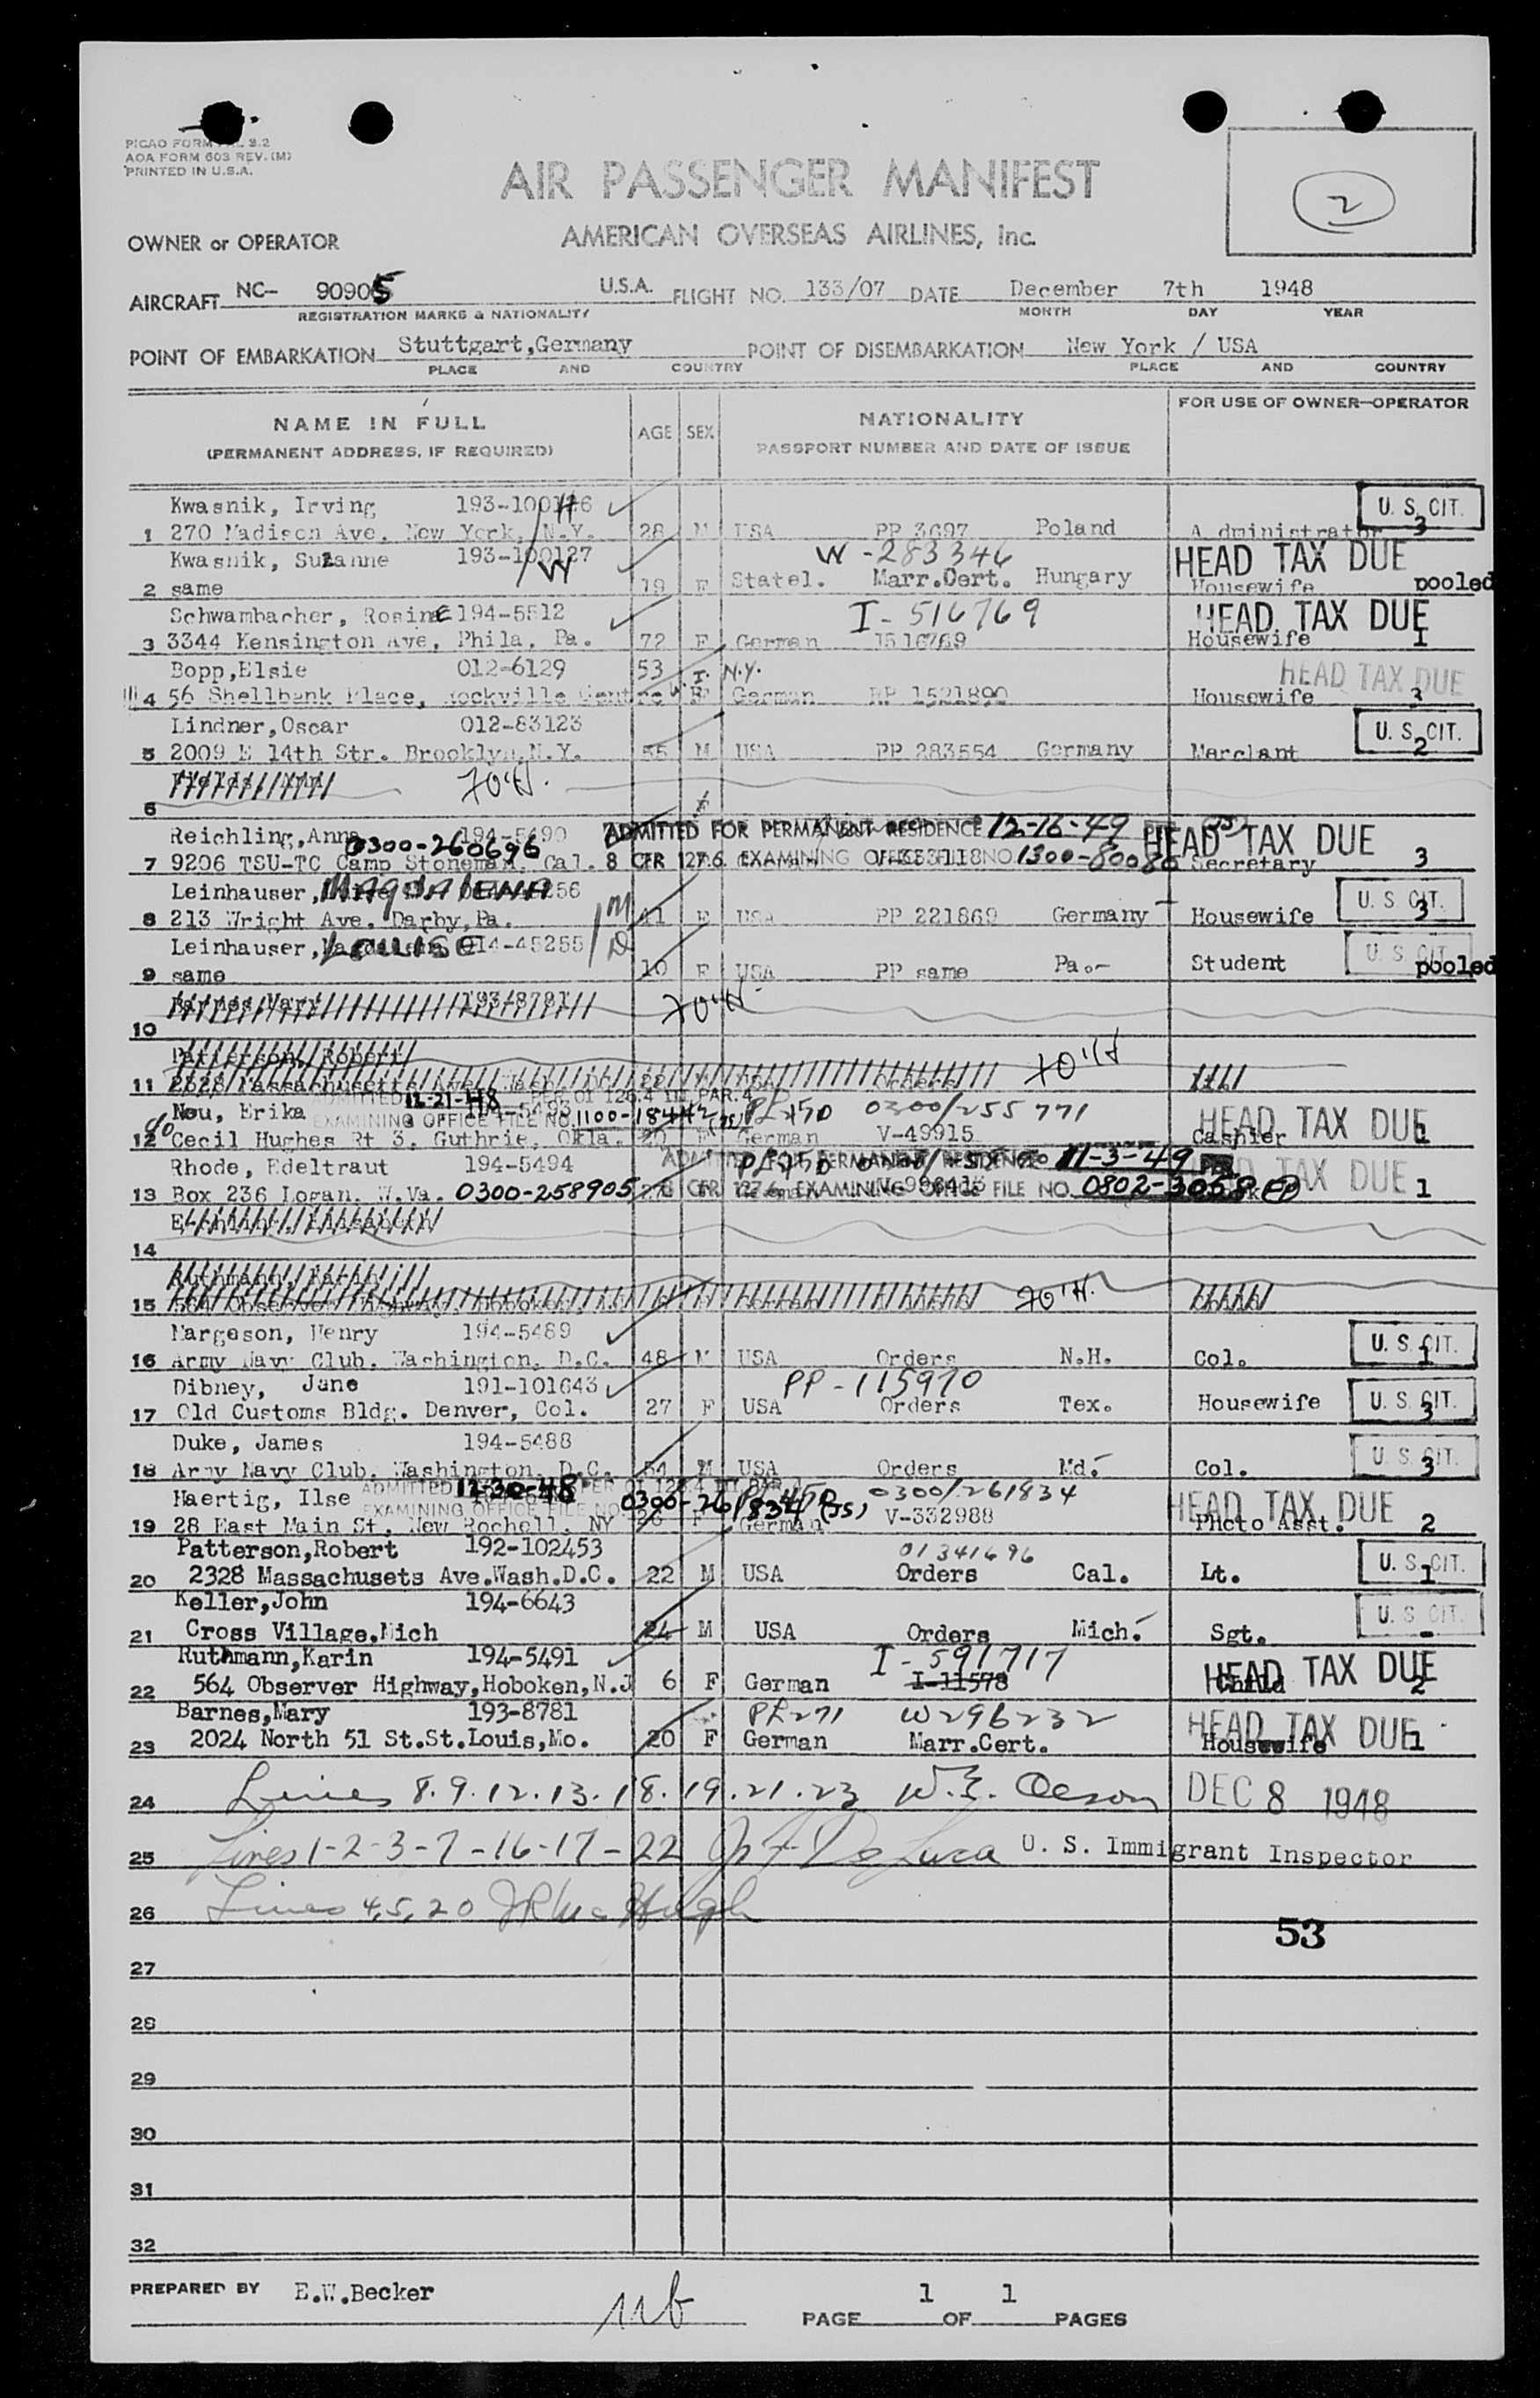 PICAO FORM
AOA FORM 603 REV. (M)
PRINTED IN U.S.A.
AIR PASSENGER MANIFEST
2
OWNER or OPERATOR AMERICAN OVERSEAS AIRLINES, Inc.
AIRCRAFT NC- 90905 U.S.A. FLIGHT NO. 133/07 DATE December 7th 1948
REGISTRATION MARKS & NATIONALITY MONTH DAY YEAR
POINT OF EMBARKATION Stuttgart,Germany POINT OF DISEMBARKATION New York / USA
PLACE AND COUNTRY PLACE AND COUNTRY
NAME IN FULL AGE SEX NATIONALITY FOR USE OF OWNER-OPERATOR
(PERMANENT ADDRESS, IF REQUIRED) PASSPORT NUMBER AND DATE OF ISSUE
Kwasnik, Irving U. S. CIT.
1 270 Madison Ave, New York, N.Y. 28 M USA PP 3697 Poland Administrator 3
Kwasnik, Suzanne 193-100127 W -283346 HEAD TAX DUE
2 same 19 F Statel. Marr.Cert. Hungary Housewife pooled
Schwambacher, Rosine 194-5512 I-516769 HEAD TAX DUE
3 3344 Kensington Ave, Phila, Pa. 72 F German Housewife 1
Bopp,Elsie 012-6129 53 I. N.Y. HEAD TAX DUE
4 56 Shellbank Place, Rockville Centre F German RP 1521890 Housewife 3
Lindner,Oscar 012-83123 U. S. CIT.
5 2009 E 14th Str. Brooklyn,N.Y. 55 M USA PP 283554 Germany Merchant 2
6
Reichling,Anna 194-5490 ADMITTED FOR PERMANENT RESIDENCE 12-16-49 HEAD TAX DUE
0300-260696
7 9206 TSU-TC Camp Stoneman, Cal. 8 CFR 127.6. EXAMINING OFFICE FILE NO. 1300-80080 Secretary 3
Leinhauser, MAGDALENA U. S. CIT.
8 213 Wright Ave. Darby,Pa. 41 F USA PP 221869 Germany Housewife 3
Leinhauser, LOUISE 014-45255 U. S. CIT.
9 same 10 F USA PP same Pa. Student pooled
10 Barnes,Mary 193-8791
Patterson, Robert
11 2328 Massachusetts Ave. Wash. DC 22 M USA Orders
ADMITTED 12-21-48 PER OI 126.4 III PAR.4
Neu, Erika 194-5493 EXAMINING OFFICE FILE NO. 1100-18442 0300/255771 HEAD TAX DUE
12 c/o Cecil Hughes Rt 3, Guthrie, Okla. 20 F German V-49915 Cashier 1
Rhode, Edeltraut 194-5494 ADMITTED FOR PERMANENT RESIDENCE 11-3-49 HEAD TAX DUE
13 Box 236 Logan, W.Va. 0300-258905 8 CFR 127.6. EXAMINING OFFICE FILE NO. 0802-3058 1
14
Ruthmann, Karin
15 564 Observer Highway, Hoboken
Margeson, Henry 194-5489 U. S. CIT.
16 Army Navy Club, Washington, D.C. 48 M USA Orders N.H. Col. 1
Dibney, Jane 191-101643 PP-115970
17 Old Customs Bldg. Denver, Col. 27 F USA Orders Tex. Housewife U. S. CIT. 3
Duke, James 194-5488 U. S. CIT.
18 Army Navy Club, Washington, D.C. 54 M USA Orders Md. Col. 3
Haertig, Ilse ADMITTED 12-30-48 PER OI 126.4 III PAR.4 0300/261834 HEAD TAX DUE
EXAMINING OFFICE FILE NO. 0300-261834 (JS)
19 28 East Main St, New Rochell, NY 26 F German V-332988 Photo Asst. 2
Patterson,Robert 192-102453 01341696 U. S. CIT.
20 2328 Massachusets Ave.Wash.D.C. 22 M USA Orders Cal. Lt. 1
Keller,John 194-6643 U. S. CIT.
21 Cross Village,Mich 24 M USA Orders Mich. Sgt.
Ruthmann,Karin 194-5491 I-591717 HEAD TAX DUE
22 564 Observer Highway,Hoboken,N.J 6 F German I-11578 Child 2
Barnes,Mary 193-8781 PL271 W296232 HEAD TAX DUE
23 2024 North 51 St.St.Louis,Mo. 20 F German Marr.Cert. Housewife 1
24 Lines 8.9.12.13.18.19.21.23 W.E. Olson DEC 8 1948
25 Lines 1-2-3-7-16-17-22 De Luca U. S. Immigrant Inspector
26 Lines 4,5,20
53
27
28
29
30
31
32
PREPARED BY E.W.Becker PAGE 1 OF 1 PAGES